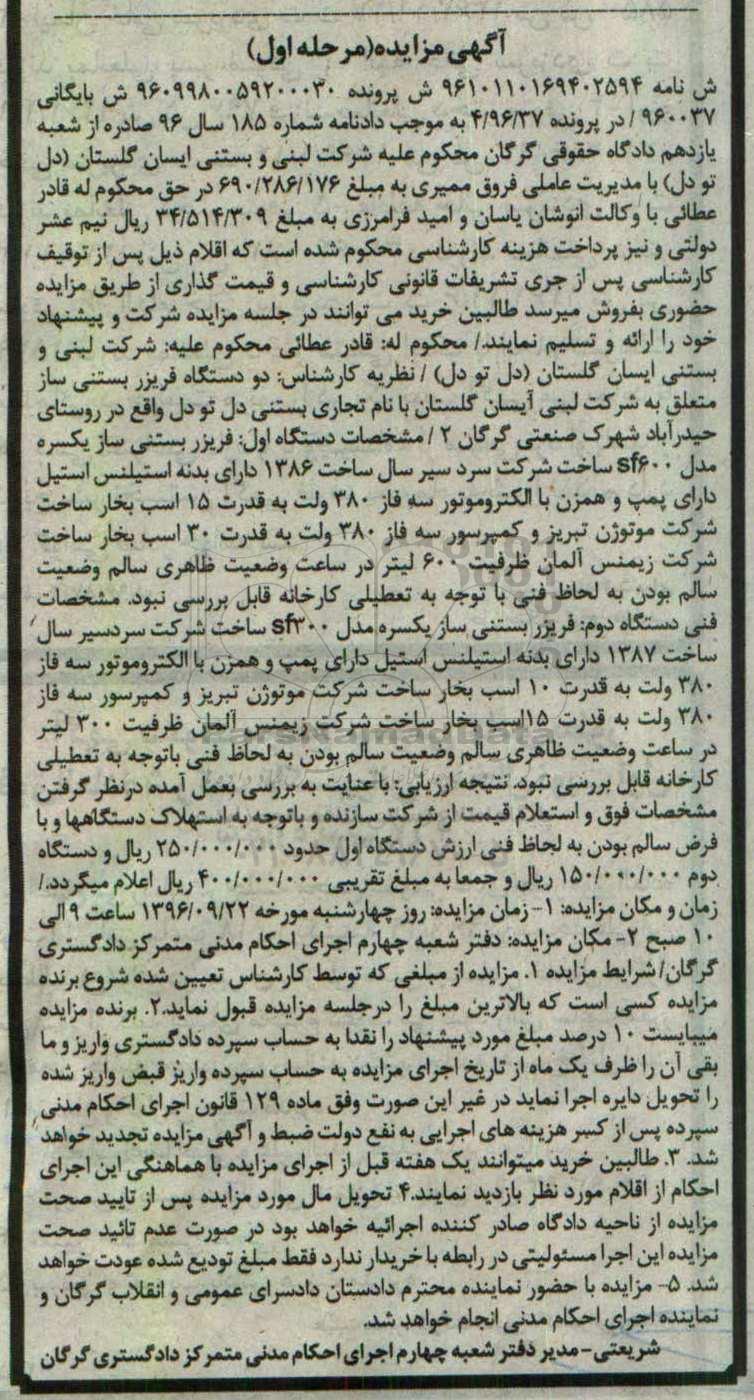 آگهی مزایده(مرحله اول)
ش نامه ۹۶۱۰۱۱۰۱۶۹۴۰۲۵۹۴ ش پرونده ۹۶۰۹۹۸۰۰۵۹۲۰۰۰۳۰ ش بایگانی
۹۶۰۰۳۷ / در پرونده ۴/۹۶/۳۷ به موجب دادنامه شماره ۱۸۵ سال ۹۶ صادره از شعبه
یازدهم دادگاه حقوقی گرگان محکوم علیه شرکت لبنی و بستنی ایسان گلستان (دل
تو دل) با مدیریت عاملی فروق ممیری به مبلغ ۶۹۰/۲۸۶/۱۷۶ در حق محکوم له قادر
عطائی با وکالت انوشان یاسان و امید فرامرزی به مبلغ ۳۴/۵۱۴/۳۰۹ ریال نیم عشر
دولتی و نیز پرداخت هزینه کارشناسی محکوم شده است که اقلام ذیل پس از توقیف
کارشناسی پس از جری تشریفات قانونی کارشناسی و قیمت گذاری از طریق مزایده
حضوری بفروش میرسد طالبین خرید می توانند در جلسه مزایده شرکت و پیشنهاد
خود را ارائه و تسلیم نمایند./ محکوم له: قادر عطائی محکوم علیه: شرکت لبنی و
بستنی ایسان گلستان (دل تو دل) / نظریه کارشناس: دو دستگاه فریزر بستنی ساز
متعلق به شرکت لبنی آیسان گلستان با نام تجاری بستنی دل تو دل واقع در روستای
حیدرآباد شهرک صنعتی گرگان ۲ / مشخصات دستگاه اول: فریزر بستنی ساز یکسره
مدل sf۶۰۰ ساخت شرکت سرد سیر سال ساخت ۱۳۸۶ دارای بدنه استیلنس استیل
دارای پمپ و همزن با الکتروموتور سه فاز ۳۸۰ ولت به قدرت ۱۵ اسب بخار ساخت
شرکت موتوژن تبریز و کمپرسور سه فاز ۳۸۰ ولت به قدرت ۳۰ اسب بخار ساخت
شرکت زیمنس آلمان ظرفیت ۶۰۰ لیتر در ساعت وضعیت ظاهری سالم وضعیت
سالم بودن به لحاظ فنی با توجه به تعطیلی کارخانه قابل بررسی نبود. مشخصات
فنی دستگاه دوم: فریزر بستنی ساز یکسره مدل sf۳۰۰ ساخت شرکت سردسیر سال
ساخت ۱۳۸۷ دارای بدنه استیلنس استیل دارای پمپ و همزن با الکتروموتور سه فاز
۳۸۰ ولت به قدرت ۱۰ اسب بخار ساخت شرکت موتوژن تبریز و کمپرسور سه فاز
۳۸۰ ولت به قدرت ۱۵اسب بخار ساخت شرکت زیمنس آلمان ظرفیت ۳۰۰ لیتر
در ساعت وضعیت ظاهری سالم وضعیت سالم بودن به لحاظ فنی باتوجه به تعطیلی
کارخانه قابل بررسی نبود. نتیجه ارزیابی: با عنایت به بررسی بعمل آمده درنظر گرفتن
مشخصات فوق و استعلام قیمت از شرکت سازنده و باتوجه به استهلاک دستگاهها و با
فرض سالم بودن به لحاظ فنی ارزش دستگاه اول حدود ۲۵۰/۰۰۰/۰۰۰ ریال و دستگاه
دوم ۱۵۰/۰۰۰/۰۰۰ ریال و جمعا به مبلغ تقریبی ۴۰۰/۰۰۰/۰۰۰ ریال اعلام میگردد./
زمان و مکان مزایده: ۱- زمان مزایده: روز چهارشنبه مورخه ۱۳۹۶/۰۹/۲۲ ساعت ۹ الی
۱۰ صبح ۲- مکان مزایده: دفتر شعبه چهارم اجرای احکام مدنی متمرکز دادگستری
گرگان/ شرایط مزایده ۱. مزایده از مبلغی که توسط کارشناس تعیین شده شروع برنده
مزایده کسی است که بالاترین مبلغ را درجلسه مزایده قبول نماید.۲. برنده مزایده
میبایست ۱۰ درصد مبلغ مورد پیشنهاد را نقدا به حساب سپرده دادگستری واریز و ما
بقی آن را ظرف یک ماه از تاریخ اجرای مزایده به حساب سپرده واریز قبض واریز شده
را تحویل دایره اجرا نماید در غیر این صورت وفق ماده ۱۲۹ قانون اجرای احکام مدنی
سپرده پس از کسر هزینه های اجرایی به نفع دولت ضبط و آگهی مزایده تجدید خواهد
شد. ۳. طالبین خرید میتوانند یک هفته قبل از اجرای مزایده با هماهنگی این اجرای
احکام از اقلام مورد نظر بازدید نمایند.۴ تحویل مال مورد مزایده پس از تایید صحت
مزایده از ناحیه دادگاه صادر کننده اجرائیه خواهد بود در صورت عدم تائید صحت
مزایده این اجرا مسئولیتی در رابطه با خریدار ندارد فقط مبلغ تودیع شده عودت خواهد
شد. ۵- مزایده با حضور نماینده محترم دادستان دادسرای عمومی و انقلاب گرگان و
نماینده اجرای احکام مدنی انجام خواهد شد.
شریعتی- مدیر دفتر شعبه چهارم اجرای احکام مدنی متمرکز دادگستری گرگان